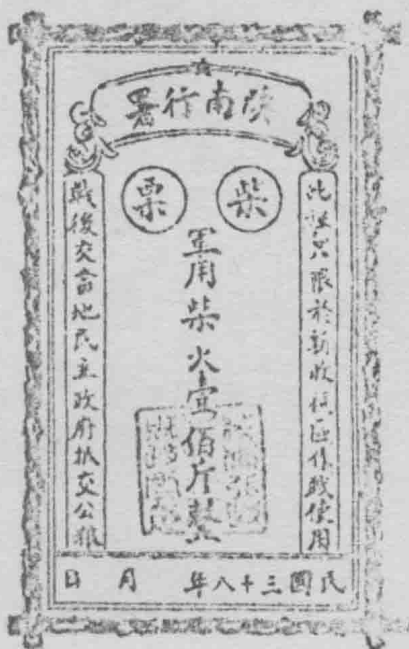 陕南行署
柴票
此証只限於新收復区作战使用
軍用柴火壹佰斤整
戰後交當地民主政府抵交公粮
民國三十八年 月 日